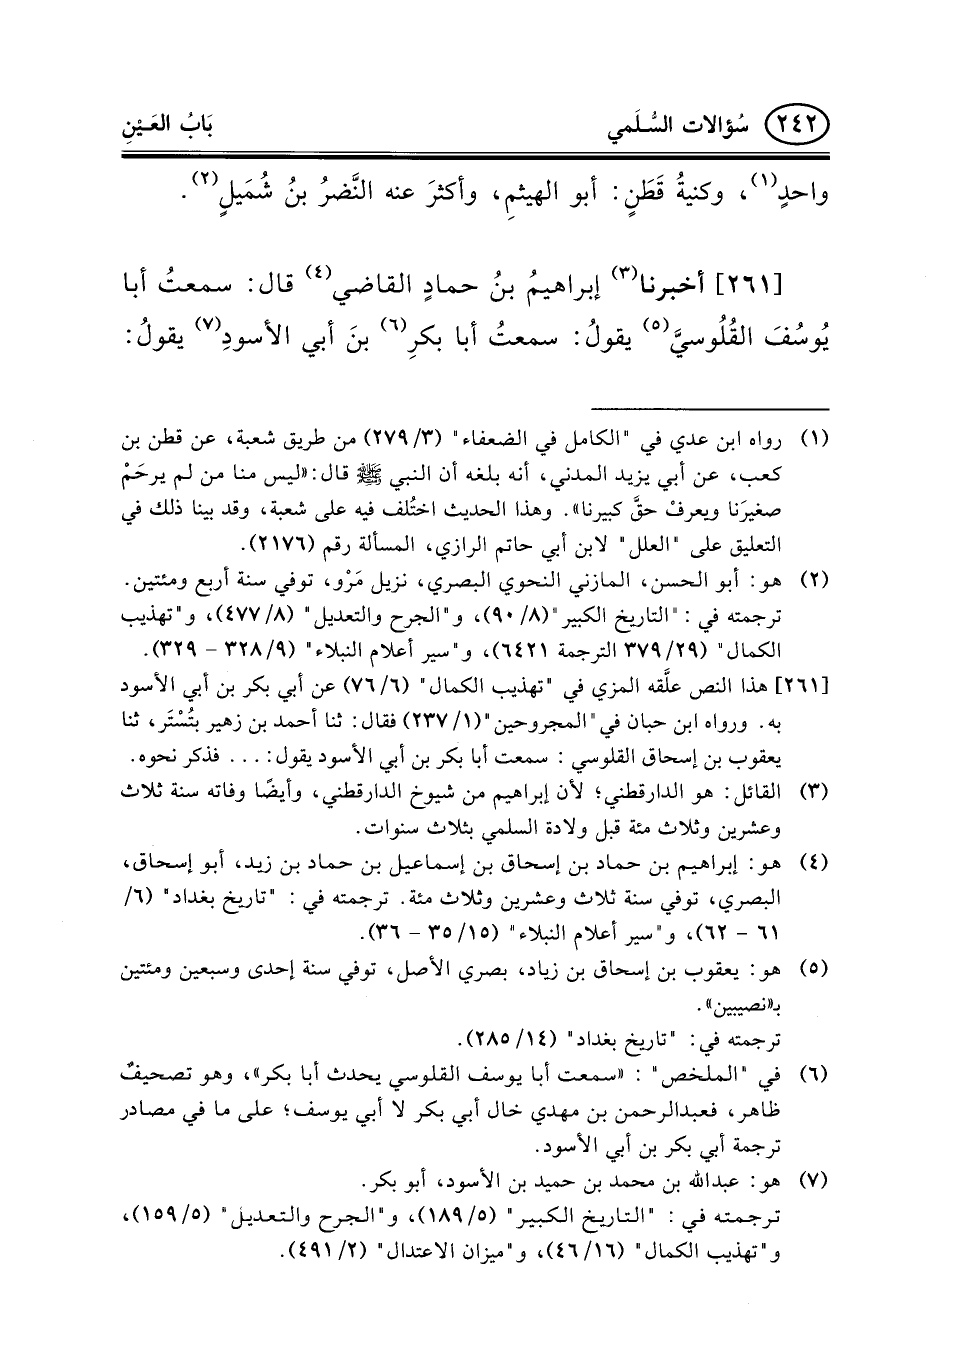 ٢٤٢ سُؤالات السُّلَمي بَابُ العَيْنِ
واحدٍ(١)، وكنيةُ قَطَنٍ: أبو الهيثمِ، وأكثرَ عنه النَّضرُ بنُ شُمَيلٍ(٢).
[٢٦١] أخبرنا(٣) إبراهيمُ بنُ حمادٍ القاضي(٤) قال: سمعتُ أبا
يُوسُفَ القُلُوسيَّ(٥) يقولُ: سمعتُ أبا بكرِ(٦) بنَ أبي الأسودِ(٧) يقولُ:
(١) رواه ابن عدي في "الكامل في الضعفاء" (٣/ ٢٧٩) من طريق شعبة، عن قطن بن
كعب، عن أبي يزيد المدني، أنه بلغه أن النبي ﷺ قال: «ليس منا من لم يرحَمْ
صغيرَنا ويعرفْ حقَّ كبيرنا». وهذا الحديث اختُلف فيه على شعبة، وقد بينا ذلك في
التعليق على "العلل" لابن أبي حاتم الرازي، المسألة رقم (٢١٧٦).
(٢) هو: أبو الحسن، المازني النحوي البصري، نزيل مَرْو، توفي سنة أربع ومئتين.
ترجمته في: "التاريخ الكبير" (٨/ ٩٠)، و"الجرح والتعديل" (٨/ ٤٧٧)، و"تهذيب
الكمال" (٢٩/ ٣٧٩ الترجمة ٦٤٢١)، و"سير أعلام النبلاء" (٩/ ٣٢٨ - ٣٢٩).
[٢٦١] هذا النص علَّقه المزي في "تهذيب الكمال" (٦/ ٧٦) عن أبي بكر بن أبي الأسود
به. ورواه ابن حبان في "المجروحين" (١/ ٢٣٧) فقال: ثنا أحمد بن زهير بتُسْتَر، ثنا
يعقوب بن إسحاق القلوسي: سمعت أبا بكر بن أبي الأسود يقول: ... فذكر نحوه.
(٣) القائل: هو الدارقطني؛ لأن إبراهيم من شيوخ الدارقطني، وأيضًا وفاته سنة ثلاث
وعشرين وثلاث مئة قبل ولادة السلمي بثلاث سنوات.
(٤) هو: إبراهيم بن حماد بن إسحاق بن إسماعيل بن حماد بن زيد، أبو إسحاق،
البصري، توفي سنة ثلاث وعشرين وثلاث مئة. ترجمته في: "تاريخ بغداد" (٦/
٦١ - ٦٢)، و"سير أعلام النبلاء" (١٥/ ٣٥ - ٣٦).
(٥) هو: يعقوب بن إسحاق بن زياد، بصري الأصل، توفي سنة إحدى وسبعين ومئتين
بـ«نصيبين».
ترجمته في: "تاريخ بغداد" (١٤/ ٢٨٥).
(٦) في "الملخص": «سمعت أبا يوسف القلوسي يحدث أبا بكر»، وهو تصحيفٌ
ظاهر، فعبدالرحمن بن مهدي خال أبي بكر لا أبي يوسف؛ على ما في مصادر
ترجمة أبي بكر بن أبي الأسود.
(٧) هو: عبدالله بن محمد بن حميد بن الأسود، أبو بكر.
ترجمته في: "التاريخ الكبير" (٥/ ١٨٩)، و"الجرح والتعديل" (٥/ ١٥٩)،
و"تهذيب الكمال" (١٦/ ٤٦)، و"ميزان الاعتدال" (٢/ ٤٩١).